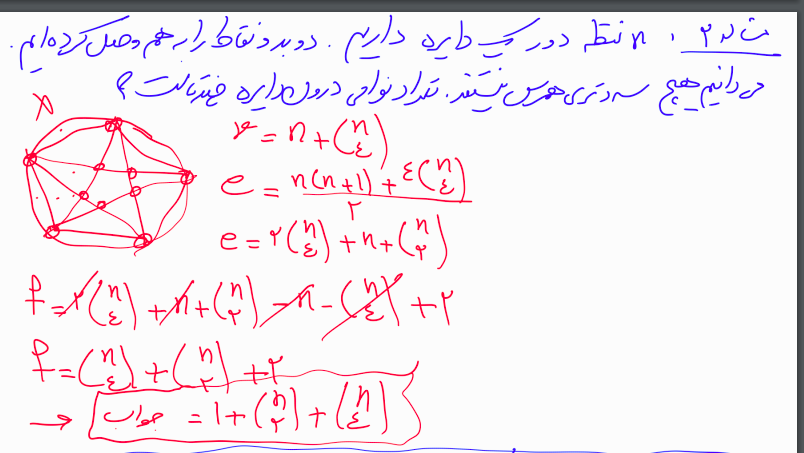 مثال ۲ , n نقطه دور یک دایره داریم . دو به دو نقاط را به هم وصل کرده‌ایم .
می دانیم هیچ سه وتری همرس نیستند . تعداد نواحی درون دایره چندتاست ؟
v = n + (n ۴)
e = (n(n+1) + ۴(n ۴)) / ۲
e = ۲(n ۴) + n + (n ۲)
f = ۲(n ۴) + n + (n ۲) - n - (n ۴) + ۲
f = (n ۴) + (n ۲) + ۲
→ جواب = 1 + (n ۲) + (n ۴)